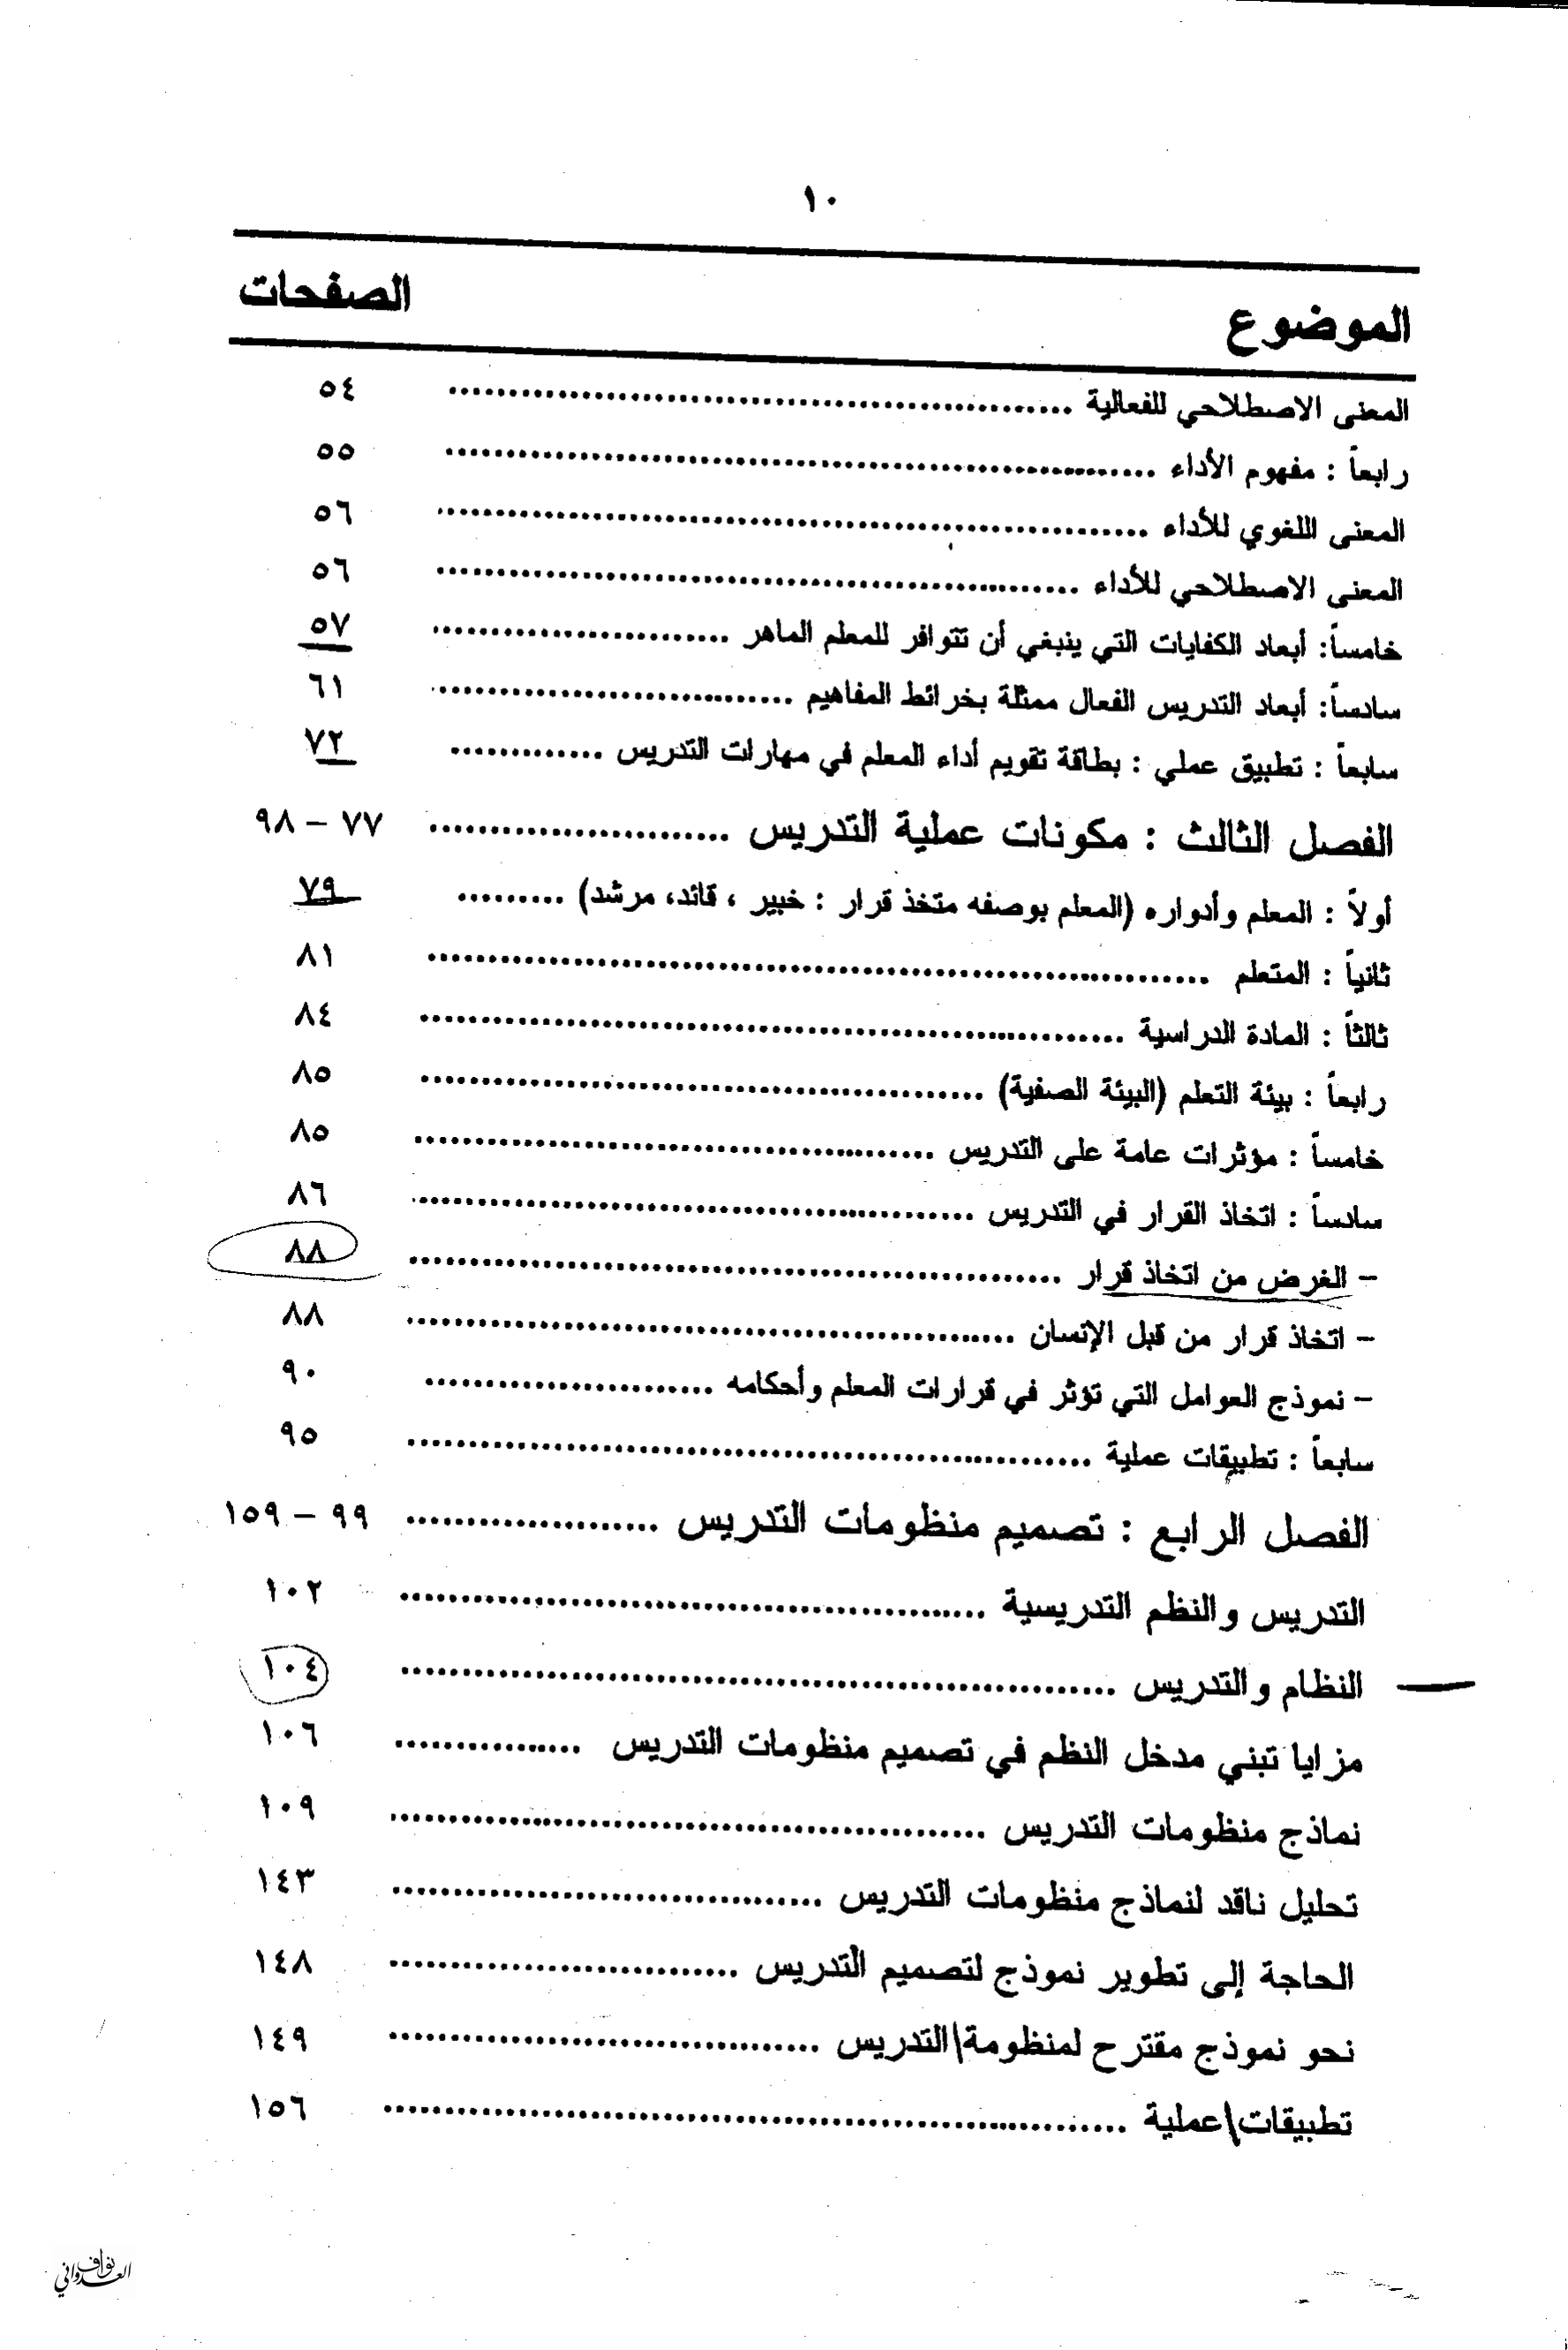 ١٠
الموضوع الصفحات
المعنى الاصطلاحي للفعالية ........................................ ٥٤
رابعاً : مفهوم الأداء ........................................ ٥٥
المعنى اللغوي للأداء ........................................ ٥٦
المعنى الاصطلاحي للأداء ........................................ ٥٦
خامساً: أبعاد الكفايات التي ينبغي أن تتوافر للمعلم الماهر .................... ٥٧
سادساً: أبعاد التدريس الفعال ممثلة بخرائط المفاهيم .................... ٦١
سابعاً : تطبيق عملي : بطاقة تقويم أداء المعلم في مهارات التدريس ............. ٧٢
الفصل الثالث : مكونات عملية التدريس .................... ٧٧ – ٩٨
أولاً : المعلم وأدواره (المعلم بوصفه متخذ قرار : خبير ، قائد، مرشد) ......... ٧٩
ثانياً : المتعلم ........................................ ٨١
ثالثاً : المادة الدراسية ........................................ ٨٤
رابعاً : بيئة التعلم (البيئة الصفية) ........................................ ٨٥
خامساً : مؤثرات عامة على التدريس ........................................ ٨٥
سادساً : اتخاذ القرار في التدريس ........................................ ٨٦
– الغرض من اتخاذ قرار ........................................ ٨٨
– اتخاذ قرار من قبل الإنسان ........................................ ٨٨
– نموذج العوامل التي تؤثر في قرارات المعلم وأحكامه .................... ٩٠
سابعاً : تطبيقات عملية ........................................ ٩٥
الفصل الرابع : تصميم منظومات التدريس .................... ٩٩ – ١٥٩
التدريس والنظم التدريسية ........................................ ١٠٢
النظام والتدريس ........................................ ١٠٤
مزايا تبني مدخل النظم في تصميم منظومات التدريس ................ ١٠٦
نماذج منظومات التدريس ........................................ ١٠٩
تحليل ناقد لنماذج منظومات التدريس .............................. ١٤٣
الحاجة إلى تطوير نموذج لتصميم التدريس .............................. ١٤٨
نحو نموذج مقترح لمنظومة التدريس .............................. ١٤٩
تطبيقات عملية ........................................ ١٥٦
نواف العدواني